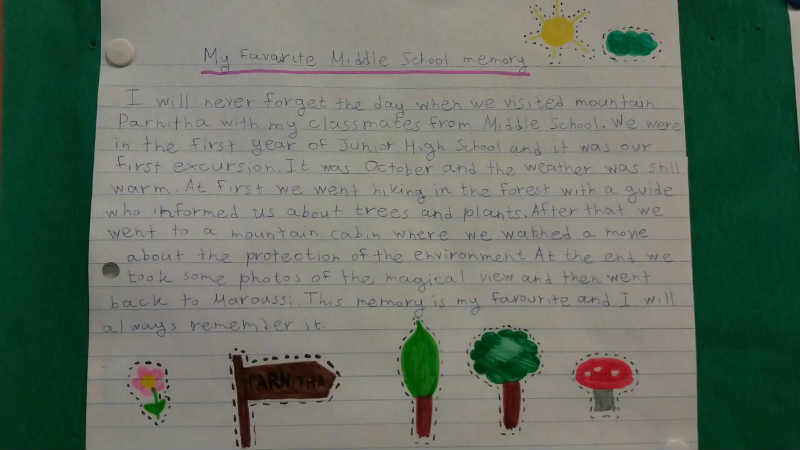 My Favorite Middle School memory
I will never forget the day when we visited mountain
Parnitha with my classmates from Middle School. We were
in the first year of Junior High School and it was our
first excursion. It was October and the weather was still
warm. At first we went hiking in the forest with a guide
who informed us about trees and plants. After that we
went to a mountain cabin where we wathed a movie
about the protection of the environment At the end we
took some photos of the magical view and then went
back to Maroussi. This memory is my favourite and I will
always remember it.
PARNITHA